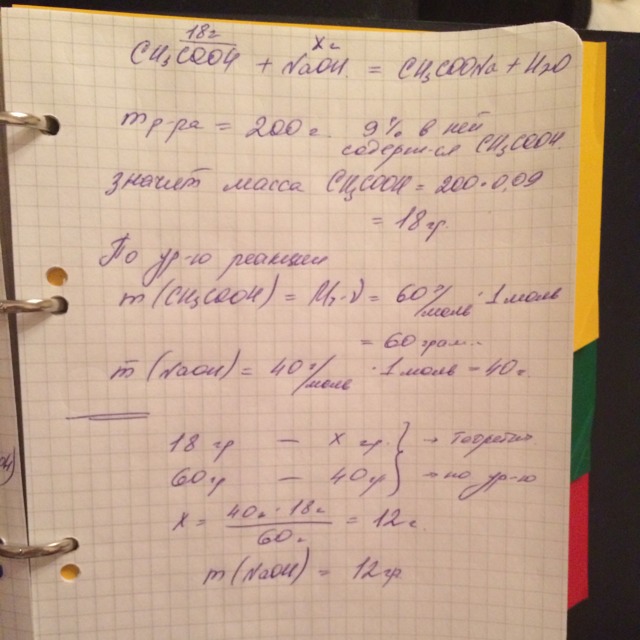 18г x г
CH₃COOH + NaOH = CH₃COONa + H₂O
m р-ра = 200 г. 9% в ней
содерж-ся CH₃COOH.
значит масса CH₃COOH = 200 · 0,09
= 18 гр.
По ур-ю реакции
m (CH₃COOH) = Mr · ν = 60 г/моль · 1 моль
= 60 грам..
m (NaOH) = 40 г/моль · 1 моль = 40 г.
18 гр — x гр. } →
60 гр — 40 гр } → по ур-ю
x = 40г · 18г / 60г = 12 г.
m (NaOH) = 12 гр